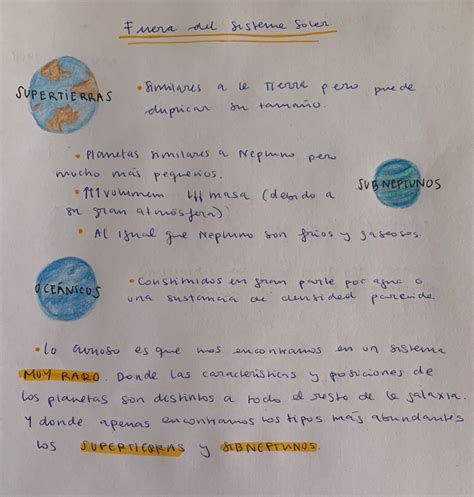 Fuera del Sistema Solar
SUPERTIERRAS
• Similares a la Tierra pero puede
duplicar su tamaño.
• Planetas similares a Neptuno pero
mucho más pequeños.
• ↑↑↑ volumen ↓↓↓ masa (debido a
su gran atmósfera)
SUBNEPTUNOS
• Al igual que Neptuno son fríos y gaseosos
OCEÁNICOS
• Constituidos en gran parte por agua o
una sustancia de densidad parecida
• Lo curioso es que nos encontramos en un sistema
MUY RARO. Donde las características y posiciones de
los planetas son distintos a todo el resto de la galaxia.
Y donde apenas encontramos los tipos más abundantes
los SUPERTIERRAS y SIBNEPTUNOS.